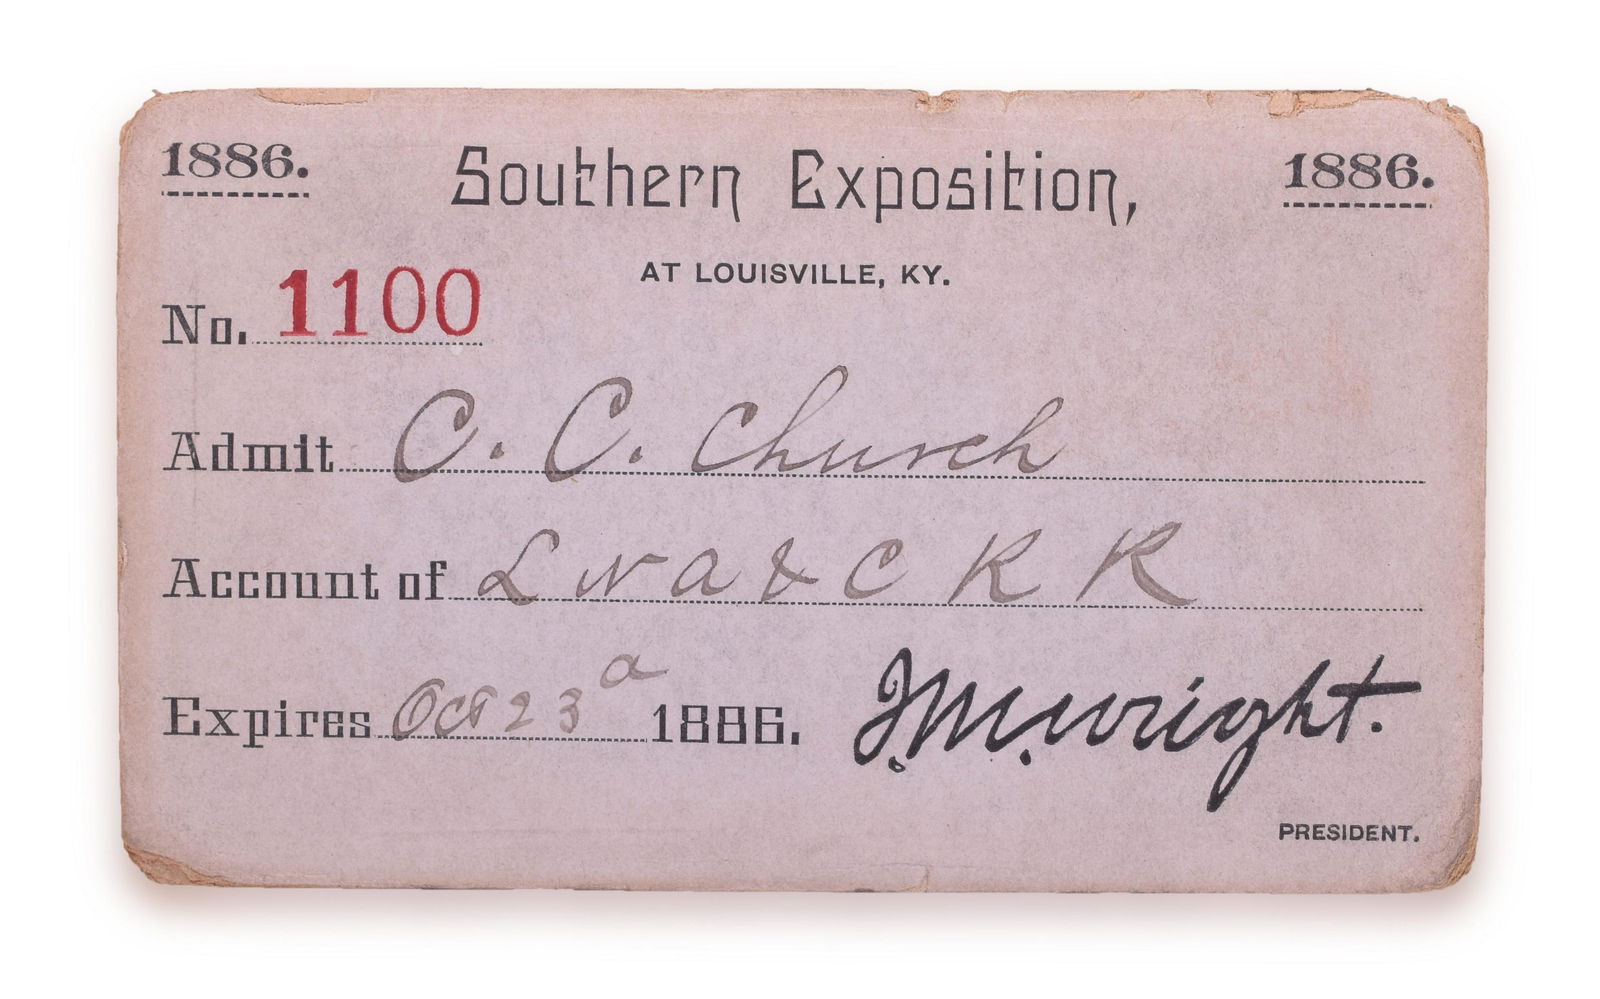 1886. Southern Exposition, 1886.
AT LOUISVILLE, KY.
No. 1100
Admit C. C. Church
Account of L N A & C R R
Expires Oct 23 a 1886. J. M. Wright.
PRESIDENT.